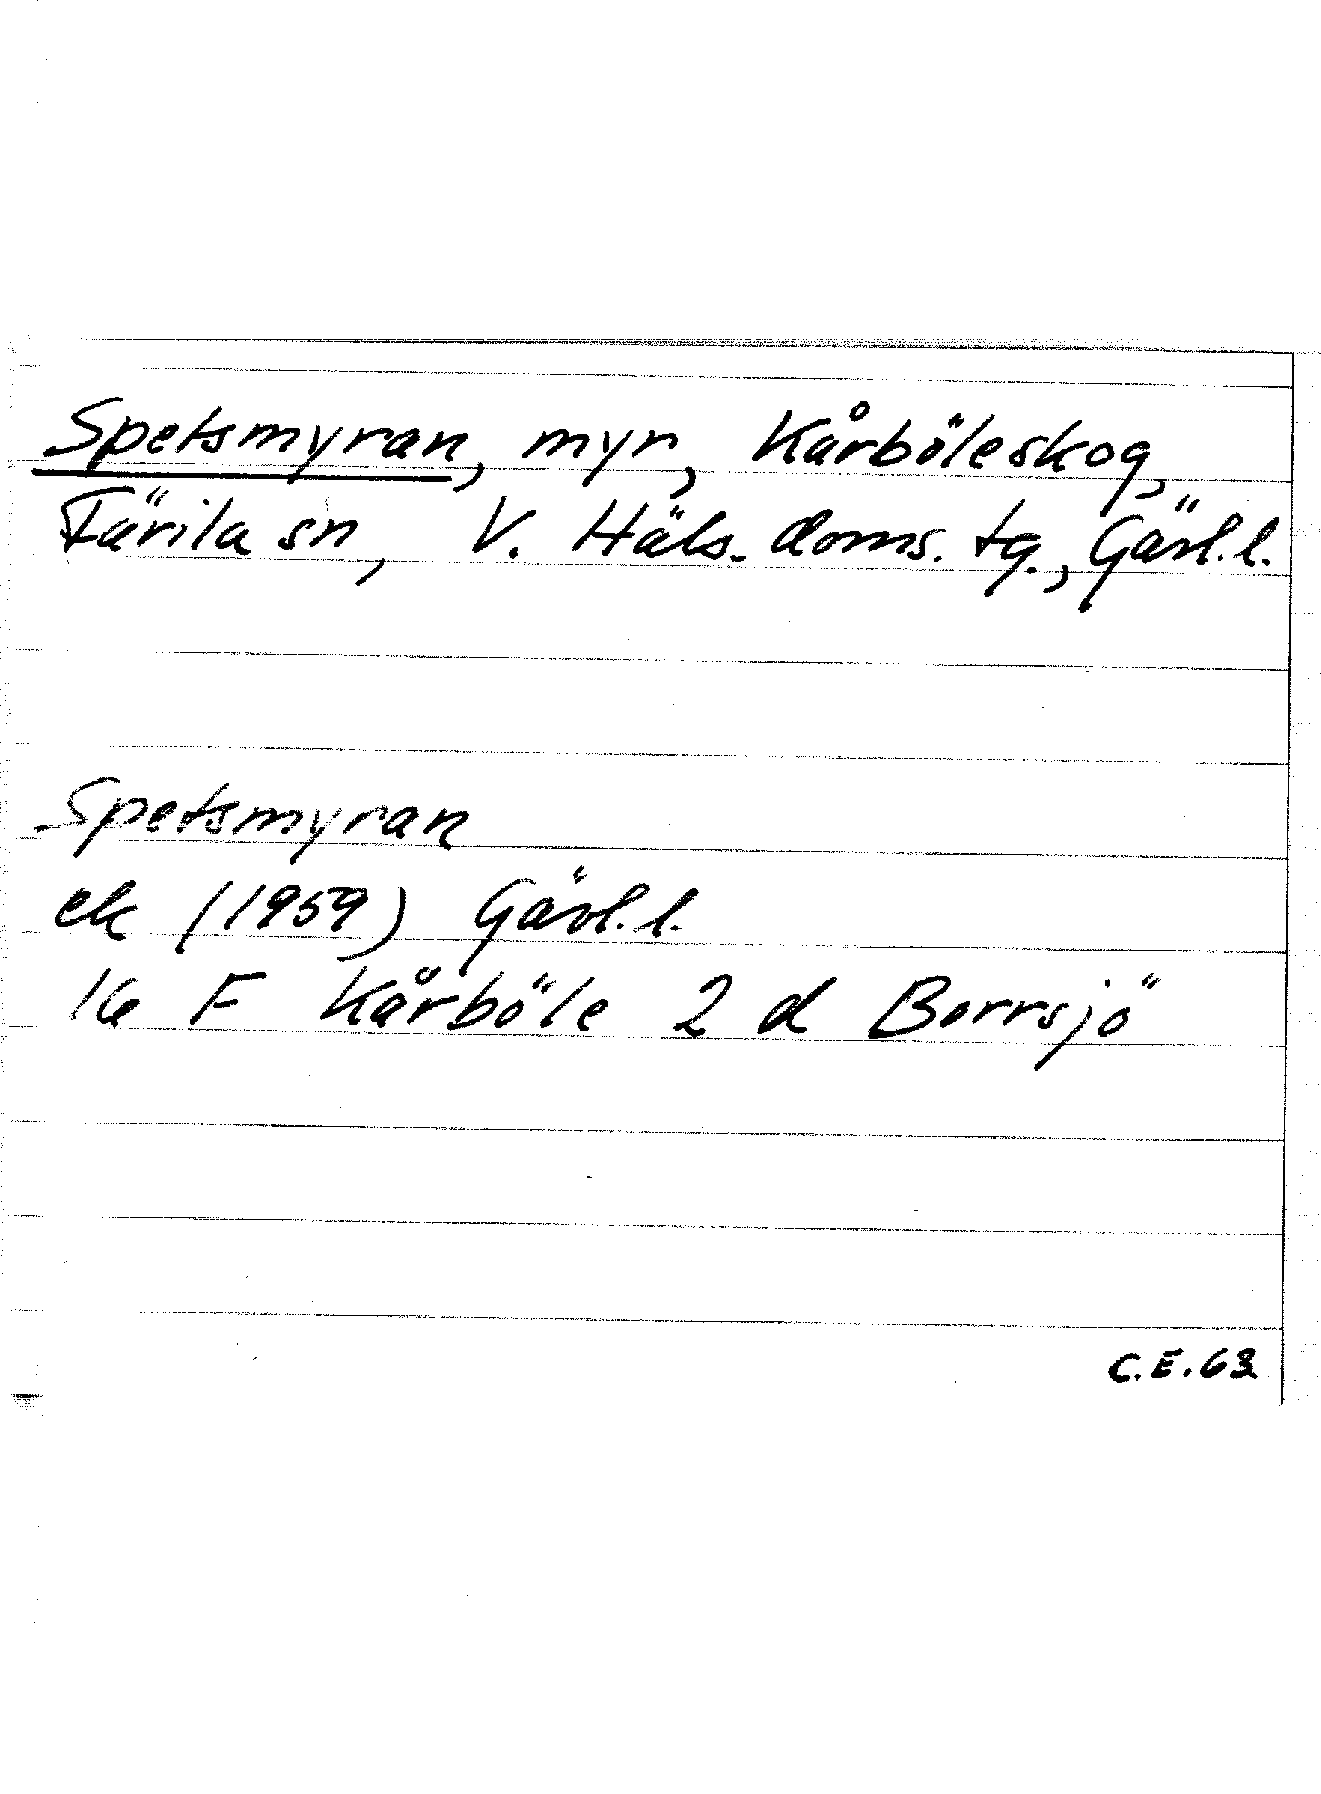 Spetsmyran, myr, Kårböleskog,
Färila sn, V. Häls. doms. tg., Gävl.l.
Spetsmyran
ek (1959) Gävl.l.
16 F Kårböle 2 d Borrsjö
C.E.63